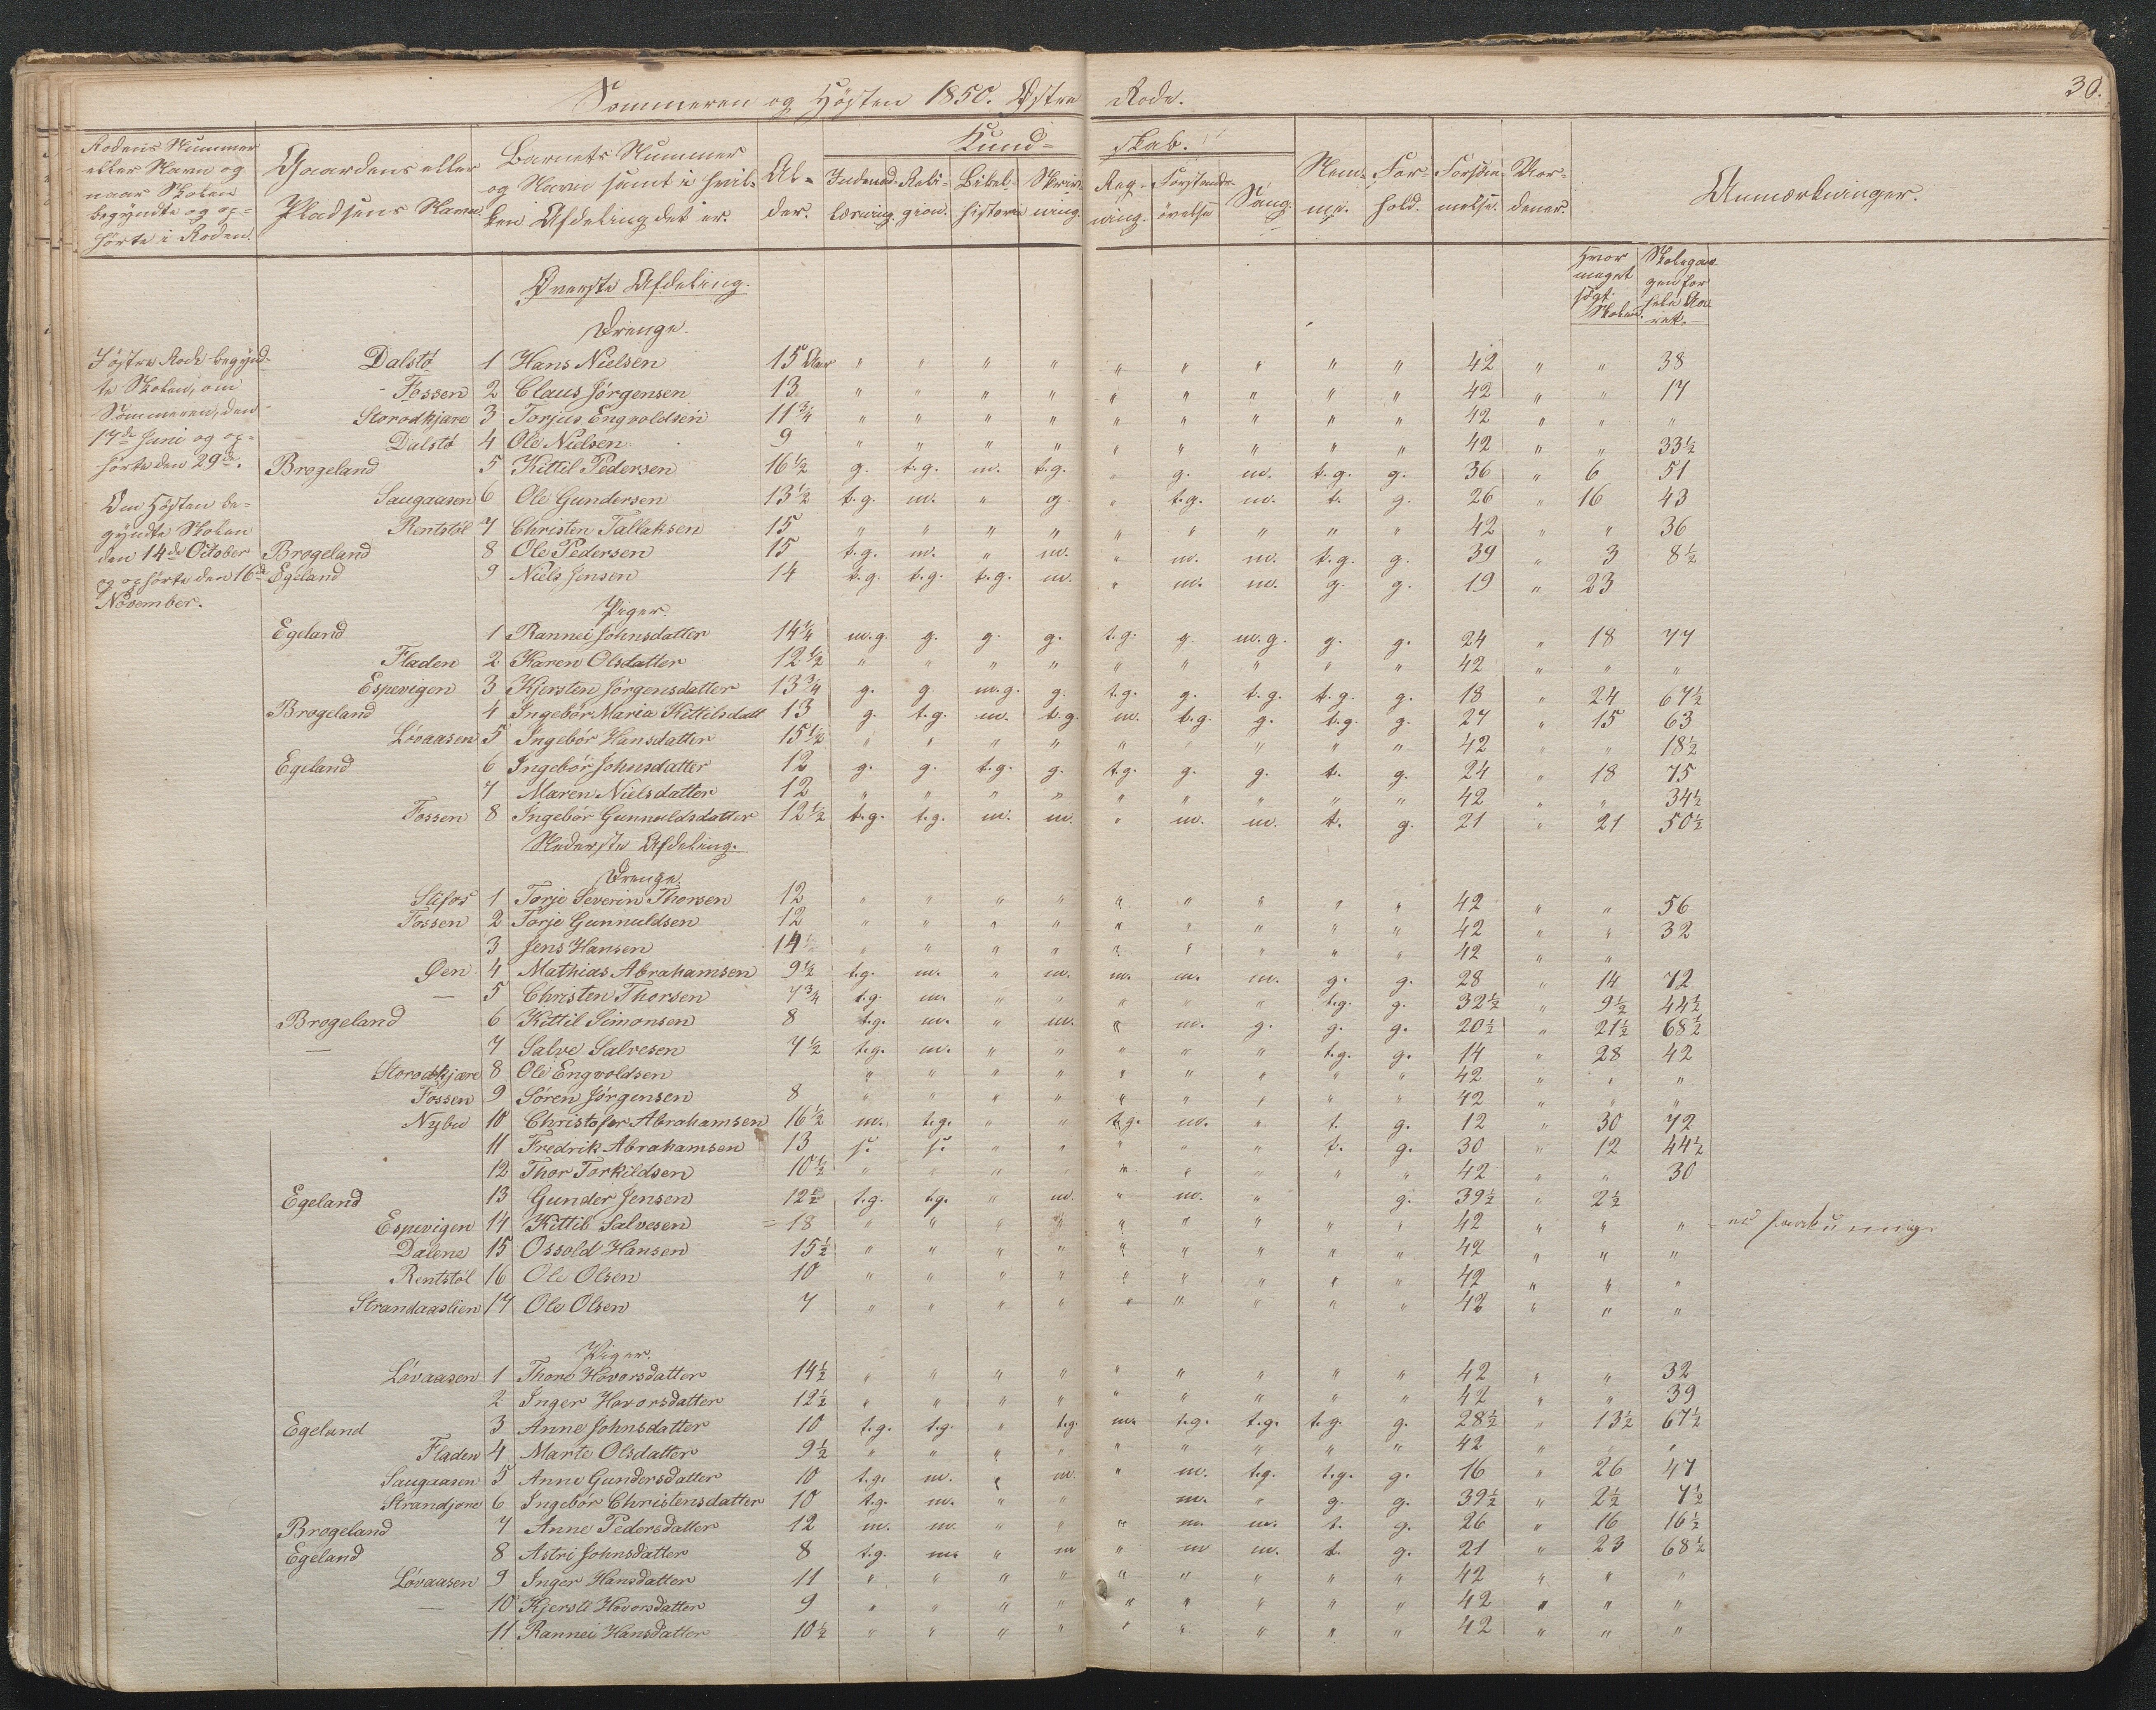 Sommeren og Høsten 1850. Østre Rode. 30.
Rodens Nummer eller Navn og naar Skolen begyndte og ophørte i Roden.
Gaardens eller Pladsens Navn.
Barnets Nummer og Navn samt i hvilken Afdeling det er.
Alder.
Kundskab.
Religion. Bibelhistorie Skrivning. Regning. Forstandsøvelse Sang.
Nemme. Forhold. Forsømmelse. Anmærkninger.
Hvor meget søgt Skolen.
Øverste Afdeling.
Drenge.
I østre Rode begynd-
te Skolen, om
Sommeren, den
17de Juni og op-
hørte den 29de.
Om Høsten be-
gyndte Skolen
den 14de October
og ophørte den 16de
November.
Dalstø 1 Hans Nielsen 15 Aar " " " " " " " " " 42 " " 38
Fossen 2 Claus Jørgensen 13 " " " " " " " " " 42 " " 17
Storodkjære 3 Torjus Engvoldsen 11 3/4 " " " " " " " " " 42 " " "
Dalstø 4 Ole Nielsen 9 " " " " " " " " " 42 " " 33½
Brogeland 5 Kittil Pedersen 16½ g. t.g. m. t.g. " g. m. t.g. g. 36 " 6 51
Saugaasen 6 Ole Gundersen 13½ t.g. m. " g. " t.g. m. t. g. 26 " 16 43
Rentstøl 7 Christen Tallaksen 15 " " " " " " " " " 42 " " 36
Brogeland 8 Ole Pedersen 15 t.g. m. " m. " m. m. t.g. g. 39 " 3 8½
Egeland 9 Niels Jensen 14 t.g. t.g. t.g. m. " m. m. g. g. 19 " 23
Piger.
Egeland 1 Rannei Johnsdatter 14¼ m.g. g. g. g. t.g. g. m.g. g. g. 24 " 18 77
Fladen 2 Karen Olsdatter 12½ " " " " " " " " " 42 " " "
Espevigen 3 Kjersten Jørgensdatter 13 3/4 g. g. m.g. g. t.g. g. t.g. t.g. g. 18 " 24 67½
Brogeland 4 Ingebor Maria Kittilsdatt 13 g. t.g. m. t.g. m. t.g. g. t.g. g. 27 " 15 63
Løvaasen 5 Ingebør Hansdatter 15½ " " " " " " " " " 42 " " 18½
Egeland 6 Ingebør Johnsdatter 12 g. g. t.g. g. t.g. g. g. t. g. 24 " 18 75
7 Maren Nielsdatter 12 " " " " " " " " " 42 " " 34½
Fossen 8 Ingebør Gunnuldsdatter 12½ t.g. t.g. m. m. " m. m. t. g. 21 " 21 50½
Nederste Afdeling.
Drenge.
Stifos 1 Torje Severin Thorsen 12 " " " " " " " " " 42 " " 56
Fossen 2 Torje Gunnuldsen 12 " " " " " " " " " 42 " " 32
3 Jens Hansen 14 " " " " " " " " " 42 " "
Øen 4 Mathias Abrahamsen 9½ t.g. m. " m. m. m. m. g. g. 28 " 14 72
— 5 Christen Thorsen 7 3/4 t.g. m. " " " " " t.g. g. 32½ " 9½ 44½
Brogeland 6 Kittil Simonsen 8 t.g. m. " m. " m. g. g. g. 20½ " 21½ 68½
— 7 Salve Salvesen 7½ t.g. m. " " " " " t.g. g. 14 " 28 42
Storodkjære 8 Ole Engvoldsen " " " " " " " " " 42 " " "
Fossen 9 Søren Jørgensen 8 " " " " " " " " " 42 " " "
Nybu 10 Christofer Abrahamsen 16½ m. t.g. " " t.g. m. " t. g. 12 " 30 72
11 Fredrik Abrahamsen 13 s. s. " " " " " t. g. 30 " 12 44½
12 Thor Torkildsen 10½ " " " " " " " " " 42 " " 30
Egeland 13 Gunder Jensen 12½ t.g. t.g. " m. " m. " g. 39½ " 2½
Espevigen 14 Kittil Salvesen 18 " " " " " " " " " 42 " " "
Dalene 15 Ossold Hansen 15½ " " " " " " " " " 42 " " "
Rentstøl 16 Ole Olsen 10 " " " " " " " " " 42 " " "
Strandaaslien 17 Ole Olsen 7 " " " " " " " " " 42 " " "
Piger.
Løvaasen 1 Thore Hovorsdatter 14½ " " " " " " " " " 42 " " 32
2 Inger Hovorsdatter 12½ " " " " " " " " " 42 " " 39
Egeland 3 Anne Johnsdatter 10 t.g. t.g. " t.g. m. t.g. t.g. t.g. g. 28½ " 13½ 67½
Fladen 4 Marte Olsdatter 9½ " " " " " " " " " 42 " " "
Saugaasen 5 Anne Gundersdatter 10 t.g. m. " m. " m. t.g. t.g. g. 16 " 26 47
Strandjore 6 Ingebør Christensdatter 10 t.g. m. " " m. " g. g. 39½ " 2½ 7½
Brogeland 7 Anne Pedersdatter 12 m. m. " " " m. m. t. g. 26 " 16 16½
Egeland 8 Astri Johnsdatter 8 t.g. m. " m " m m. t. g. 21 " 23 68½
Løvaasen 9 Inger Hansdatter 11 " " " " " " " " " 42 " " "
— 10 Kjersti Hovorsdatter 9 " " " " " " " " " 42 " " "
11 Rannei Hansdatter 10½ " " " " " " " " " 42 " " "